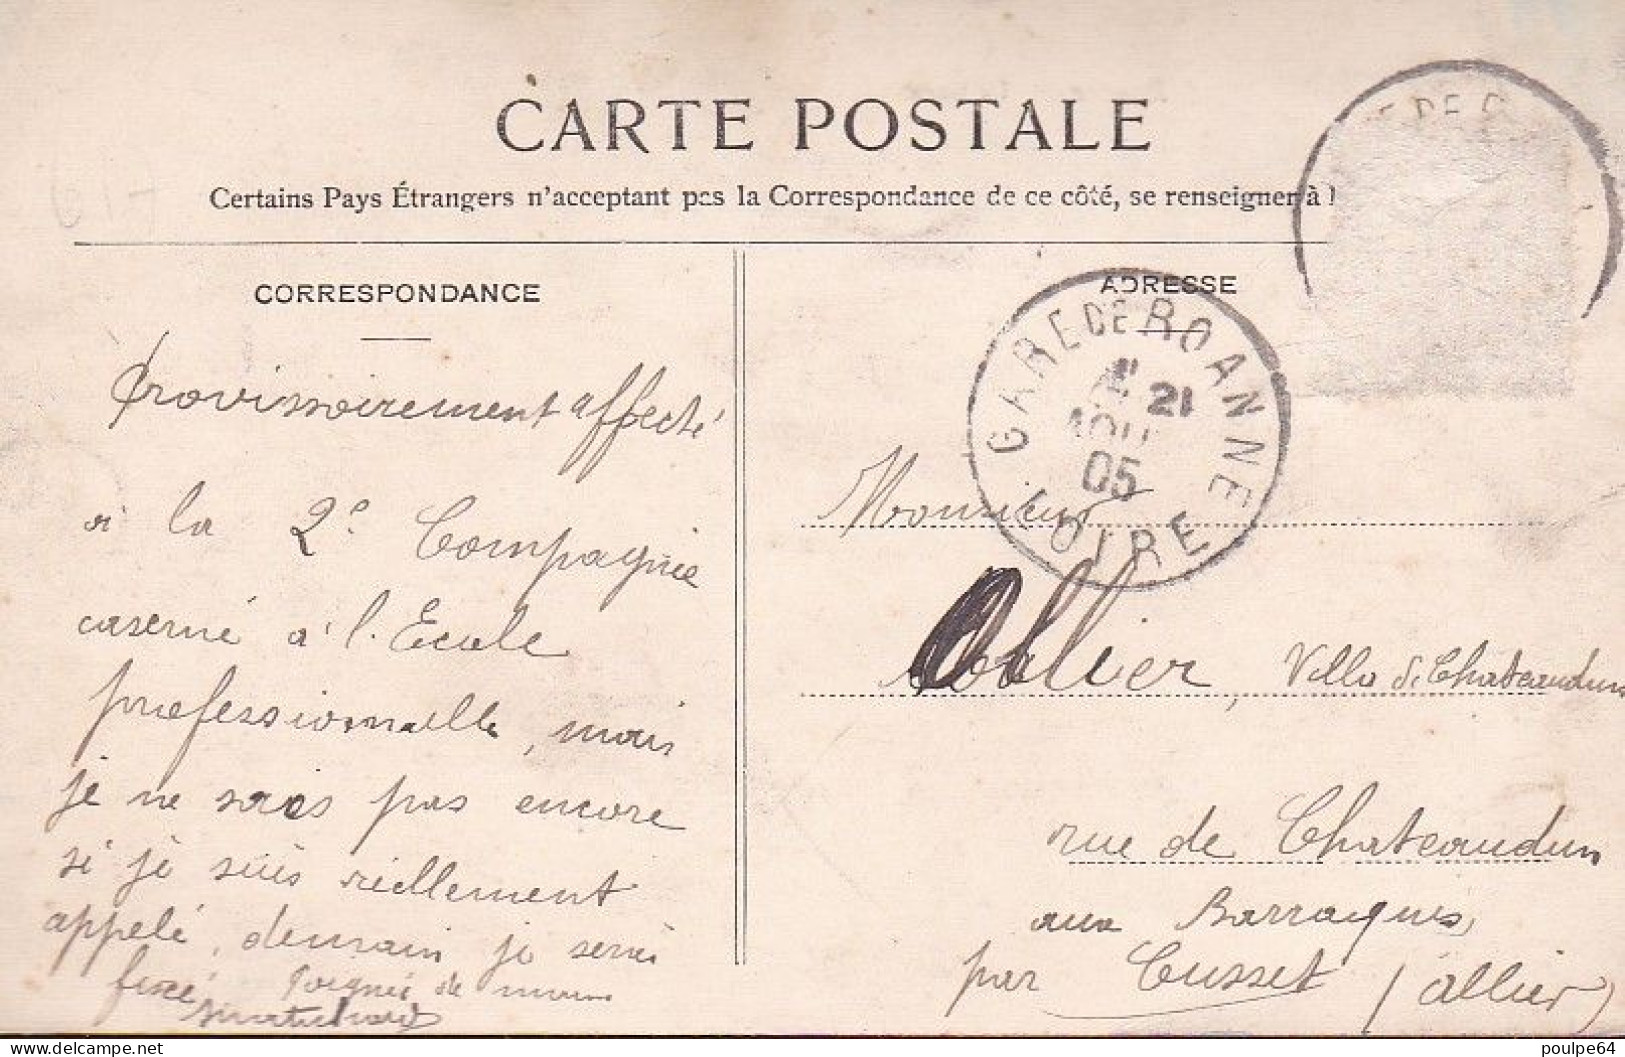 CARTE POSTALE
Certains Pays Étrangers n'acceptant pas la Correspondance de ce côté, se renseigner à l
CORRESPONDANCE
Provissoirement affecté
à la 2e Compagnie
caserné à l'Ecole
professionnelle, mais
je ne sais pas encore
si je suis réellement
appelé, demain je serai
fixé Poignée de mains
ADRESSE
GARE DE ROANNE
21
AOUT
05
LOIRE
Monsieur
Ollier, Villa de Chateaudun
rue de Chateaudun
aux Barraques
par Cusset (Allier)
E DE R
delcampe.net
poulpe64